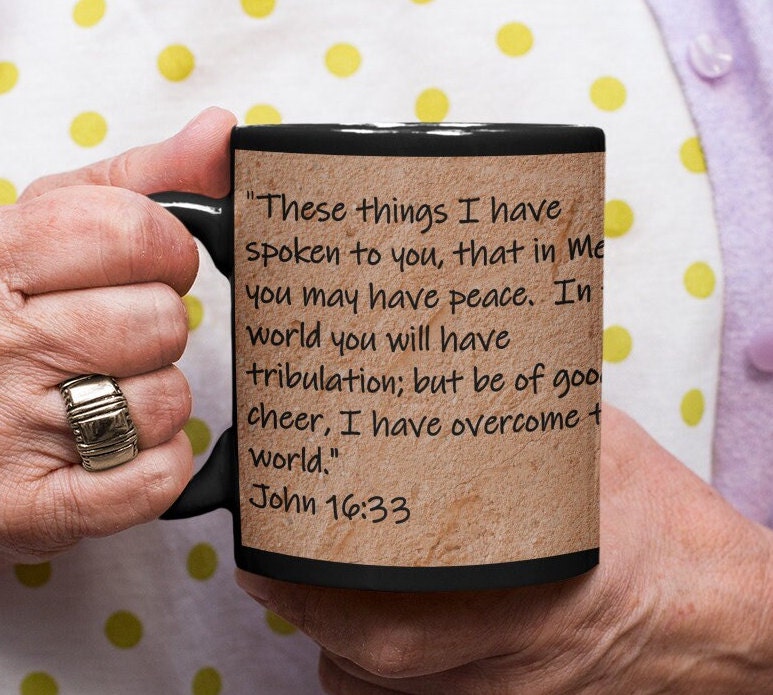 "These things I have
spoken to you, that in Me
you may have peace. In
world you will have
tribulation; but be of goo
cheer, I have overcome t
world."
John 16:33